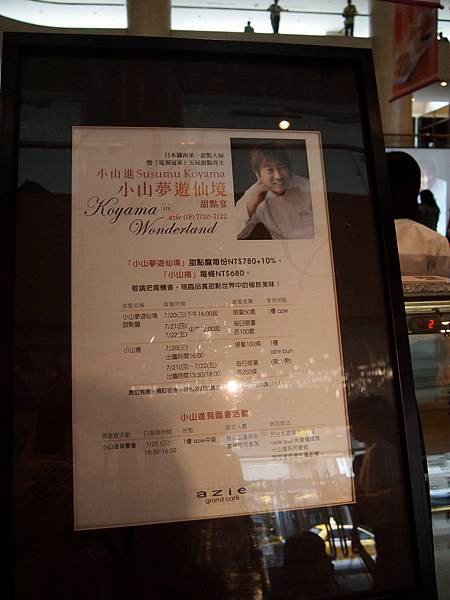 日本關西第一甜點大師
暨「電視冠軍」五屆甜點得主
小山進Susumu Koyama
小山夢遊仙境
甜點宴
Koyama in Wonderland
azie (1F) 7/20-7/22
「小山夢遊仙境」甜點盤每份NT$780+10%，
「小山捲」每條NT$680。
敬請把握機會，親臨品嘗甜點世界中的極致美味！
甜點名稱 販賣時間 限量套數 享用地點
小山夢遊仙境 7/20(三)下午16:00起 限量50套 1樓 azie
甜點盤 7/21(四) 每日限量
7/22(五) 各100套
小山捲 7/20(三) 限量100條 1樓
出爐時間16:00 azie bun
7/21(四)、7/22(五) 每日限量
出爐時間13:30/18:00 各250條
小山進見面會活動
日期與時間 地點
7/20 (三) 1樓 azie中庭
15:30-16:30
小山進系列
azie
grand café
2